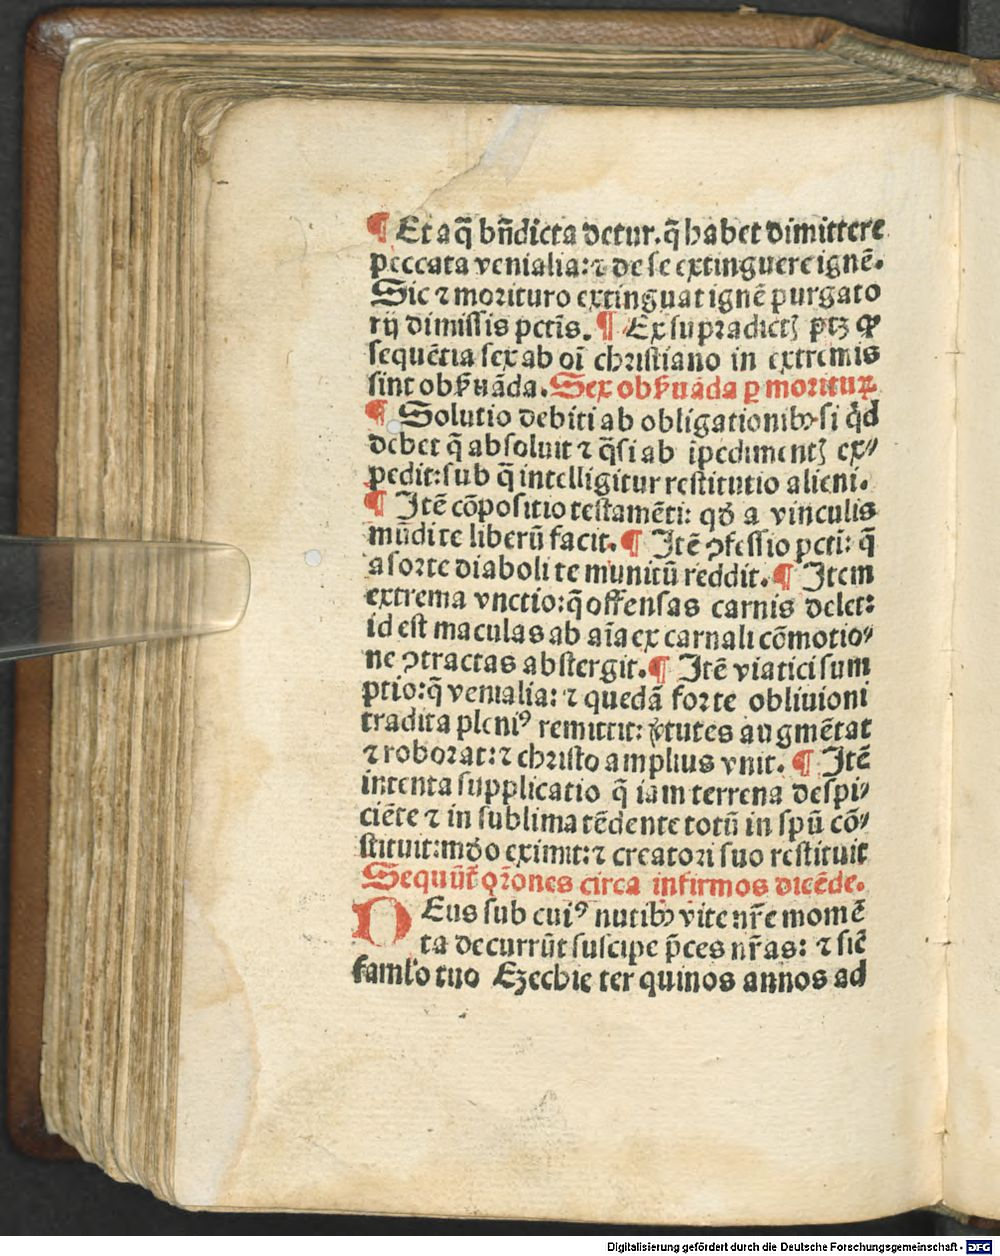 ¶ Et aq̃ bñdicta detur. q̃ habet dimittere
peccata venialia: ⁊ de se extinguere ignē.
Sic ⁊ morituro extinguat ignē purgato
rij dimissis pctīs. ¶ Ex supradictꝫ ptꝫ ꝙ
sequētia sex ab oī christiano in extremis
sint obẜuāda. Sex obẜuāda ꝑ morituꝝ
¶ Solutio debiti ab obligationibꝰ si q̇d
debet q̃ absoluit ⁊ q̃si ab īpedimentꝫ ex⸗
pedit: sub q̃ intelligitur restitutio alieni.
¶ Itē cōpositio testamēti: qđ a vinculis
mūdi te liberū facit. ¶ Itē ꝯfessio pcti: q̃
a sorte diaboli te munitū reddit. ¶ Item
extrema vnctio: q̃ offensas carnis delet:
id est maculas ab aīa ex carnali cōmotio⸗
ne ꝯtractas abstergit. ¶ Itē viatici sum
ptio: q̃ venialia: ⁊ quedā forte obliuioni
tradita pleniꝰ remittit: ỽtutes augmētat
⁊ roborat: ⁊ christo amplius vnit. ¶ Itē
intenta supplicatio q̃ iam terrena despi⸗
ciēte ⁊ in sublima tēdente totū in spū cō⸗
stituit: mđo eximit: ⁊ creatori suo restituit
Sequūt̄ oꝛ̄ones circa infirmos dicēde.
DEus sub cuiꝰ nutibꝰ vite nr̄e momē
ta decurrūt suscipe p̄ces nr̄as: ⁊ sič
famĺo tuo Ezechie ter quinos annos ad
Digitalisierung gefördert durch die Deutsche Forschungsgemeinschaft - DFG